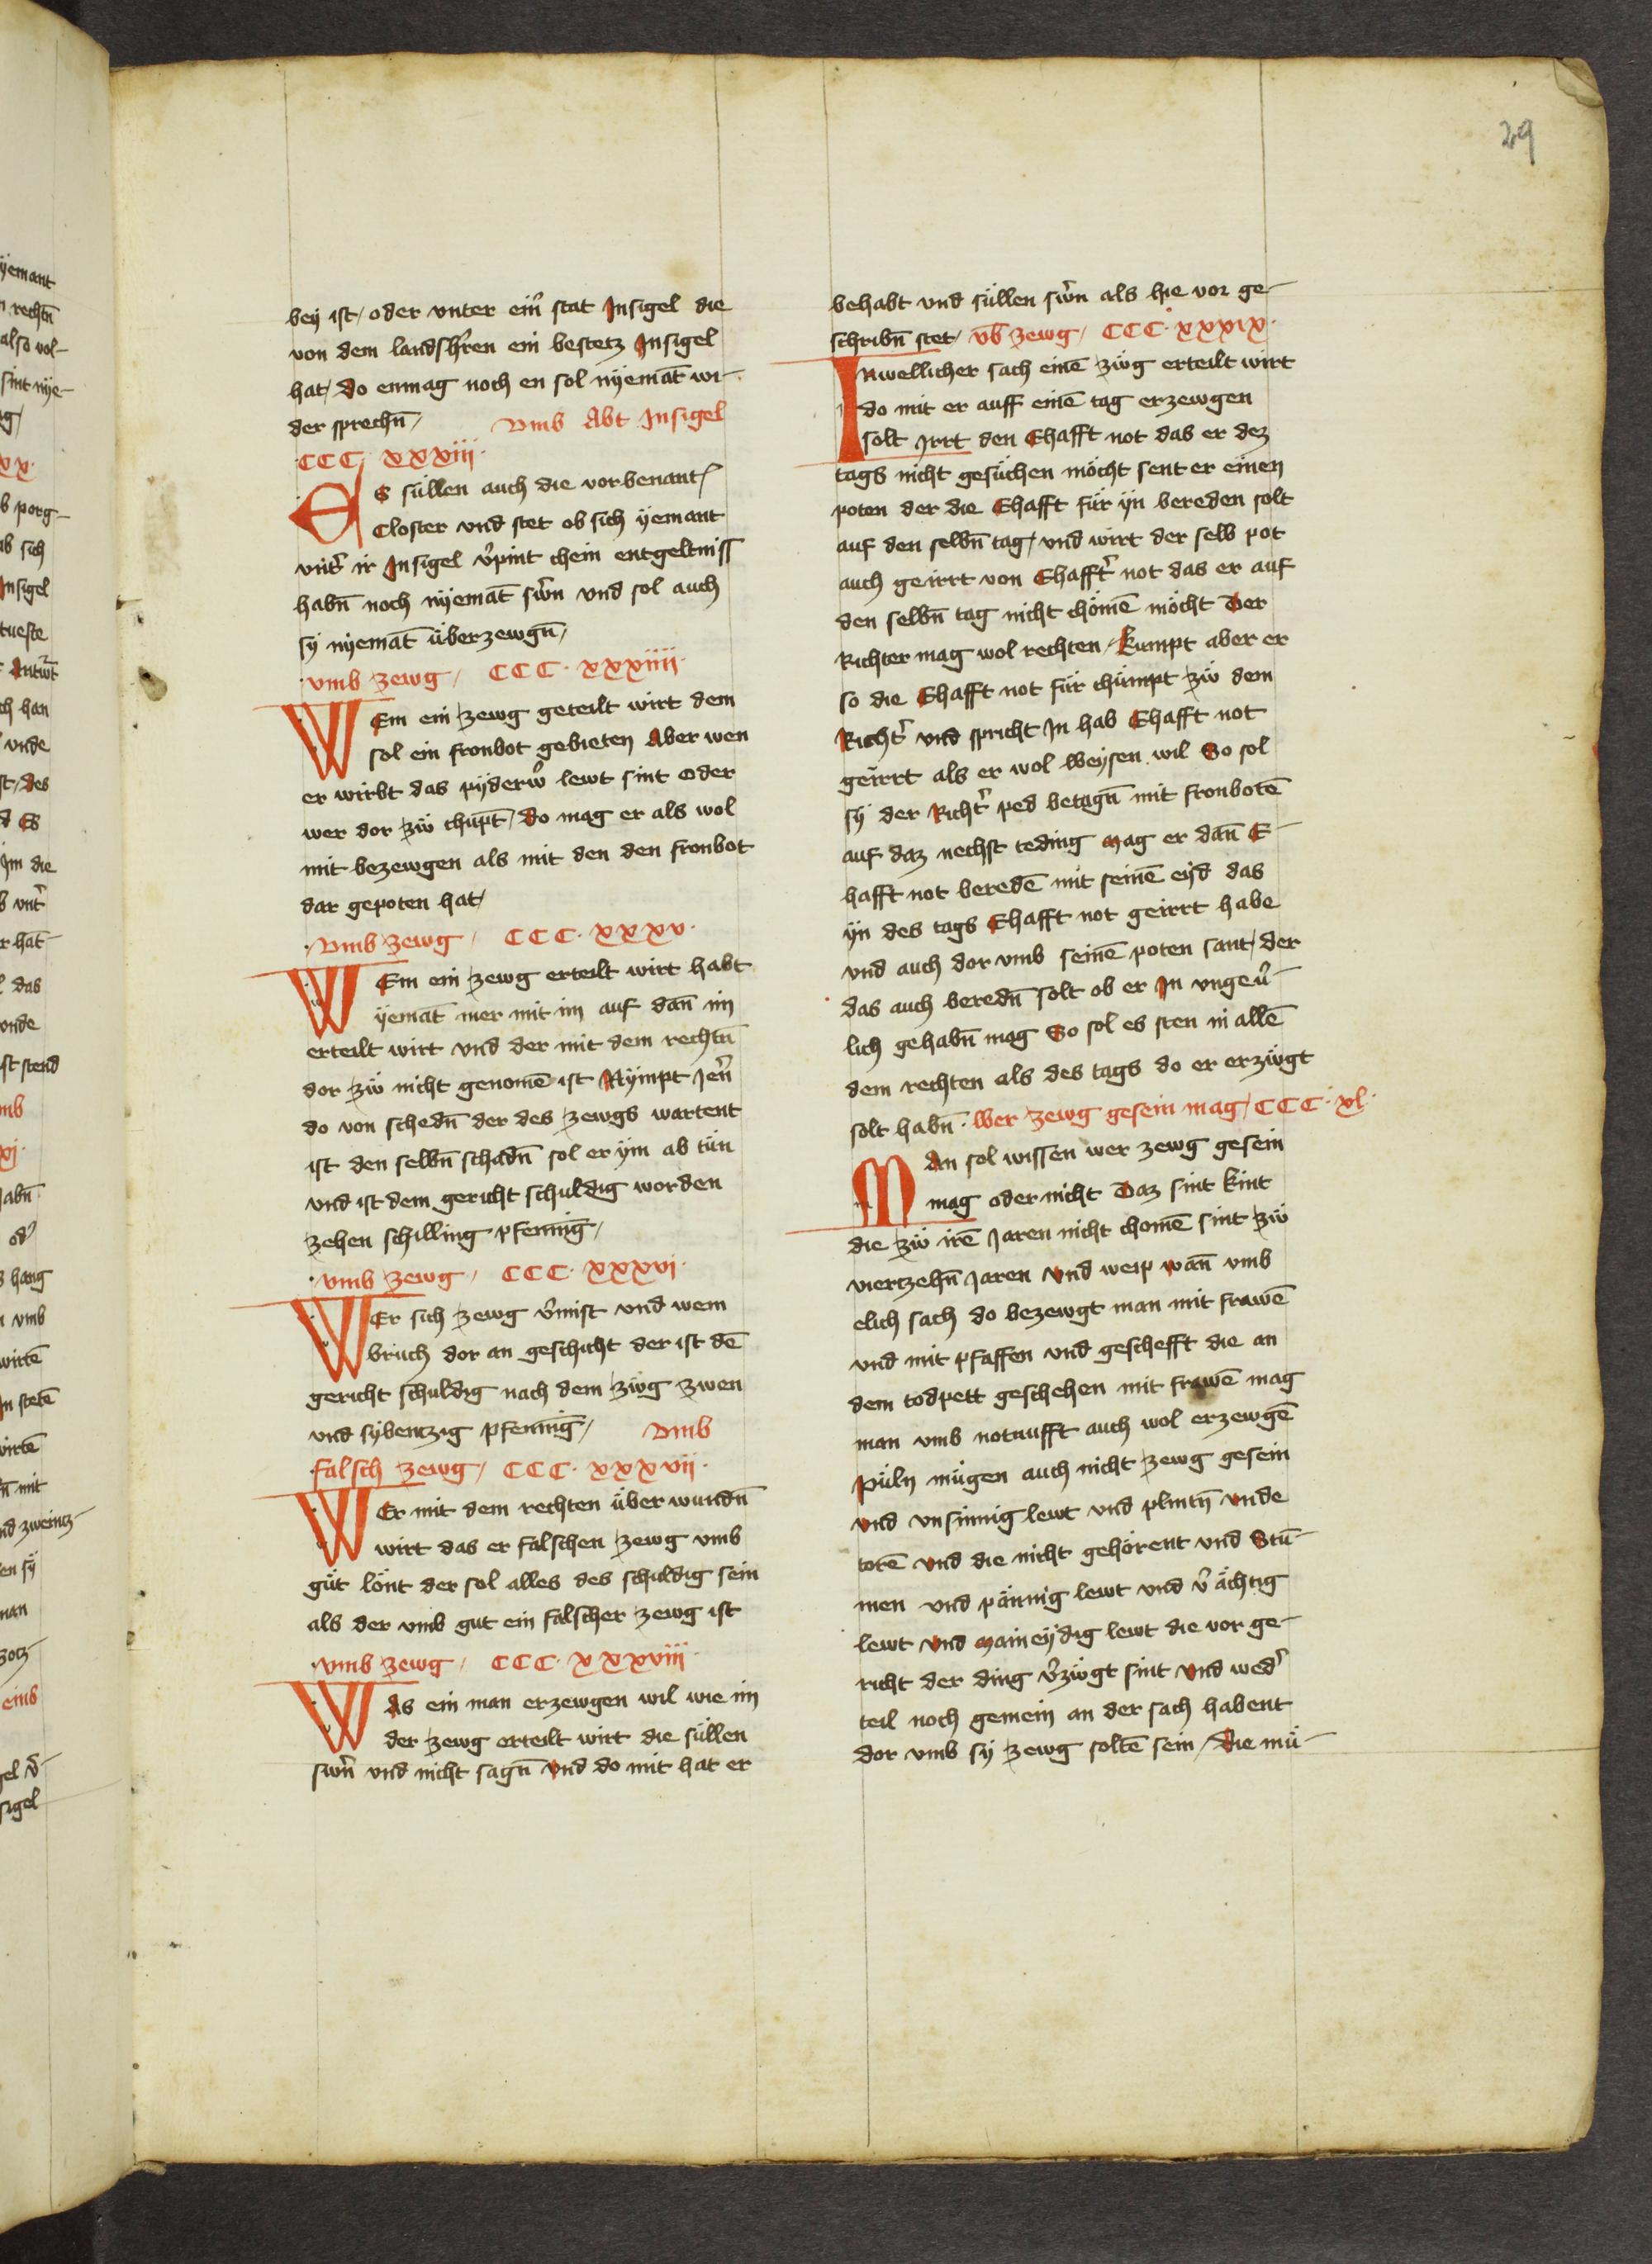 29
bey ist / oder vnter ein̄ stat Insigel die
von dem landsh̄ren ein bestetz Insigel
hat / do enmag noch en sol nyemāt wi-
der sprechn̄ / Vmb Abt Insigel
CCC xxxiij
Es süllen auch die vorbenant
Closter vnd stet ob sich yemant
vnt̄ ir Insigel v̄pint chein entgeltniss
habn̄ noch nyemāt sw̄n vnd sol auch
sy nyemāt überzewgn̄ /
vmb zewg / CCC · xxxiiij ·
WEm ein zewg geteilt wirt dem
sol ein fronbot gebieten Aber wen
er wirbt das pyderw̄ lewt sint oder
wer dor zẅ chūpt / do mag er als wol
mit bezewgen als mit den den fronbot
dar gepoten hat /
· Vmb zewg / CCC · xxxv ·
WEm ein zewg erteilt wirt habt
yemāt mer mit im auf dan̄ im
erteilt wirt vnd der mit dem rechtn̄
dor zẅ nicht genomē ist Nympt Jen̄
do von schedn̄ der des zewgs wartent
ist den selbn̄ schadn̄ sol er ym ab tün
vnd ist dem gericht schuldig worden
zehen schilling pfenning /
· vmb zewg / CCC · xxxvi ·
WEr sich zewg v̄mist vnd wem
bruch dor an geschicht der ist dē
gericht schuldig nach dem zẅg zwen
vnd sybentzig pfenning / Vmb
falsch zewg / CCC · xxxvii ·
WEr mit dem rechten über wundn̄
wirt das er falschen zewg vmb
güt lönt der sol alles des schuldig sein
als der vmb gut ein falscher zewg ist
· vmb zewg / CCC · xxxviii ·
WAs ein man erzewgen wil wie im
der zewg erteilt wirt die süllen
swn̄ vnd nicht sagn̄ vnd do mit hat er
behabt vnd süllen sw̄n als hie vor ge-
schribn̄ stet / vb̄ zewg / CCC · xxxix ·
Inwellicher sach einē zẅg erteilt wirt
do mit er auff einē tag erzewgen
solt Jrrt den Ehafft not das er dez
tags nicht gesüchen möcht sent er einen
poten der die Ehafft für yn bereden solt
auf den selbn̄ tag / vnd wirt der selb pot
auch geirrt von Ehafft̄ not das er auf
den selbn̄ tag nicht chömē möcht Der
Richter mag wol rechten / Kumpt aber er
so die Ehafft not für chümpt zẅ dem
Richt̄ vnd spricht In hab Ehafft not
geirrt als er wol Weysen wil So sol
sy der Richt̄ ped betagn̄ mit fronbotē
auf daz nechst teding Mag er dan̄ E-
hafft not beredē mit seinē eyd das
yn des tags Ehafft not geirrt habe
vnd auch dor vmb seinē poten sant / der
das auch beredn̄ solt ob er In vngeu̇-
lich gehabn̄ mag So sol es sten in allē
dem rechten als des tags do er erzẅgt
solt habn̄ · Wer zewg gesein mag / CCC · xl ·
MAn sol wissen wer zewg gesein
mag oder nicht Daz sint kint
die zẅ irē Jaren nicht chomē sint zẅ
viertzehn̄ Jaren vnd weip wan̄ vmb
elich sach do bezewgt man mit frawē
vnd mit pfaffen vnd geschefft die an
dem todpett geschehen mit frawē mag
man vmb notnufft auch wol erzewgē
Püln mügen auch nicht zewg gesein
vnd vnsinnig lewt vnd plintn̄ vnde
torē vnd die nicht gehörent vnd Stū-
men vnd pännig lewt vnd v̄ ächtig
lewt vnd Maineydig lewt die vor ge-
richt der ding v̄zẅgt sint vnd wed̄
teil noch gemein an der sach habent
dor vmb sy zewg soltē sein / Die mü-